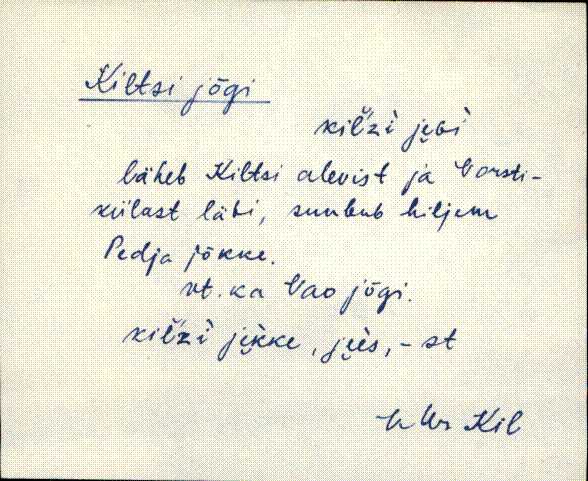 Kiltsi jõgi
kil̆'zì je̮ɢì
läheb Kiltsi alevist ja Vorsti-
külast läbi, suubub hiljem
Pedja jõkke.
vt. ka Vao jõgi.
kil̆'zì je̮kke, je̮ès, -st
Kil